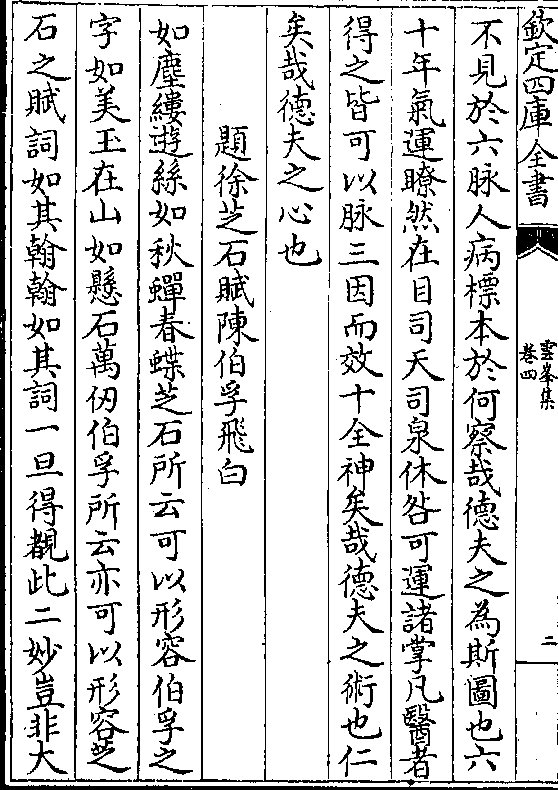 欽定四庫全書
雲峯集
卷四
二
不見於六脉人病標本於何察哉德夫之為斯圖也六
十年氣運瞭然在目司天司泉休咎可運諸掌凡醫者
得之皆可以脉三因而效十全神矣哉德夫之術也仁
矣哉德夫之心也
題徐芝石賦陳伯孚飛白
如塵縷遊絲如秋蟬春蝶芝石所云可以形容伯孚之
字如美玉在山如懸石萬仞伯孚所云亦可以形容芝
石之賦詞如其翰翰如其詞一旦得觀此二妙豈非大